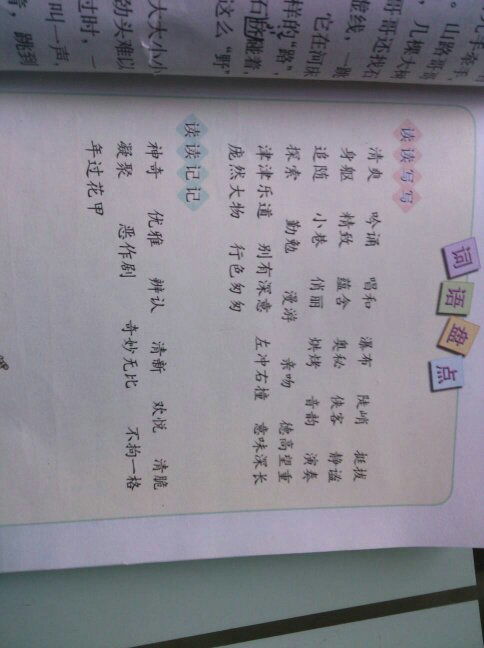 。山路
，几棵大
哥哥还找
虚线，一
它在河床
样的“路”，
这么“野”
大大小小
劲头难以
过时，一
叫一声，
着，跳到
词语盘点
读读写写
清爽 吟诵 唱和 瀑布 陡峭 挺拔
身躯 精致 蕴含 奥秘 侠客 静谧
追随 小巷 俏丽 烘烤 音韵 演奏
探索 勤勉 漫游 亲吻 德高望重
津津乐道 别有深意 左冲右撞 意味深长
庞然大物 行色匆匆
读读记记
神奇 优雅 辨认 清新 欢悦 清脆
凝聚 恶作剧 奇妙无比 不拘一格
年过花甲